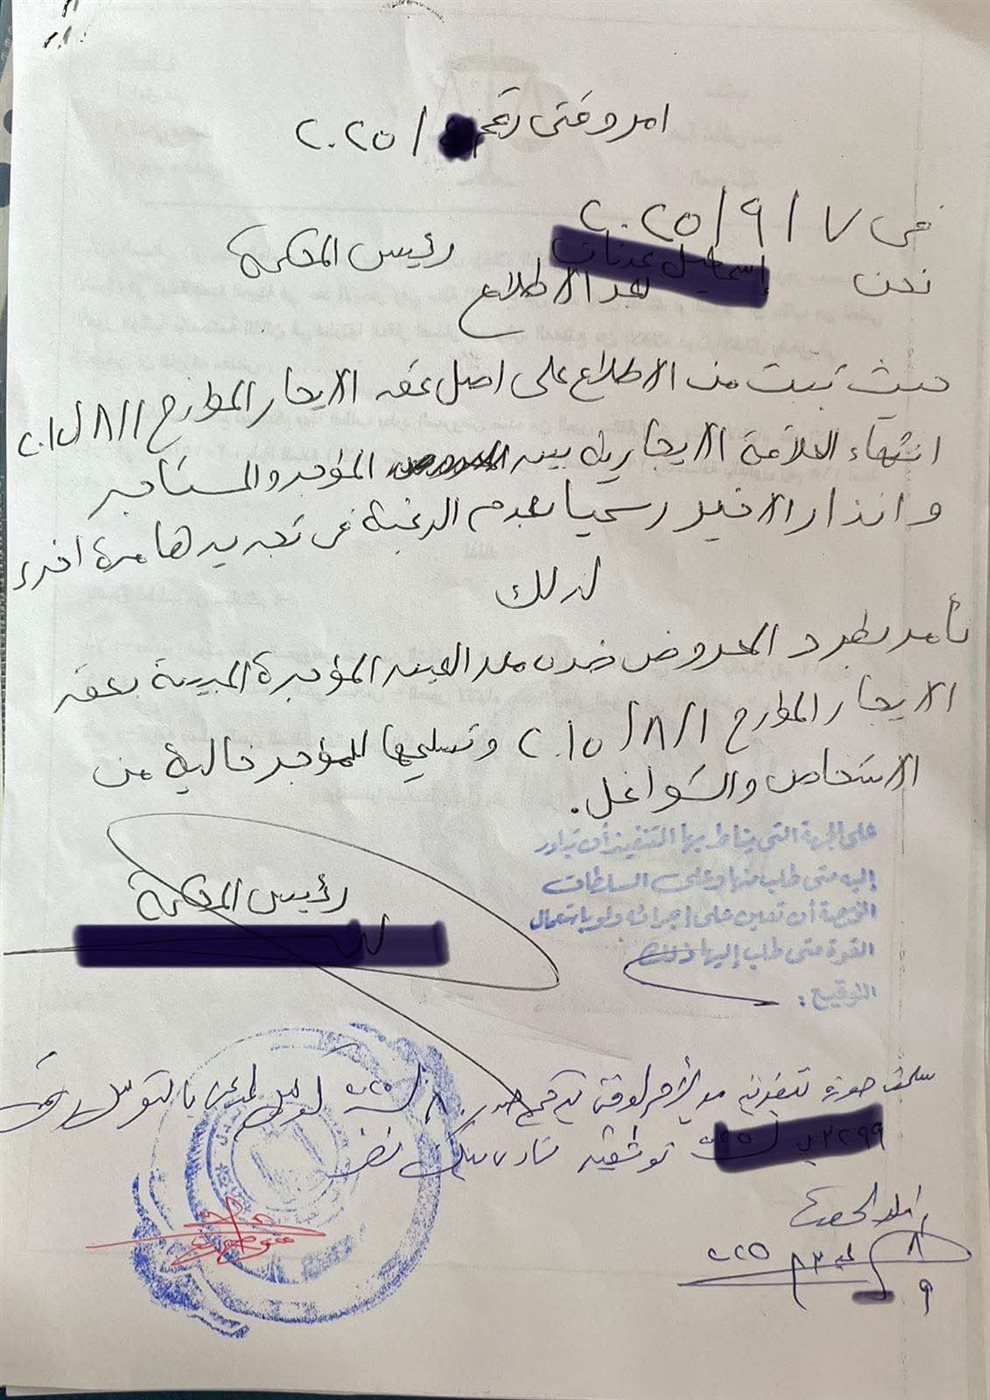 امر وقتى رقم / ٢٠٢٥
فى ٧ / ٩ / ٢٠٢٥
نحن رئيس المحكمة
بعد الاطلاع
حيث ثبت من الاطلاع على اصل عقد الايجار المؤرخ ١/٨/٢٠١٥
انتهاء العلاقة الايجارية بين المؤجر والمستاجر
وانذار الاخير رسميا بعدم الرغبة فى تجديدها مرة اخرى
لذلك
نأمر بطرد المعروض ضده من العين المؤجرة المبينة بعقد
الايجار المؤرخ ١/٨/٢٠١٥ وتسليمها للمؤجر خالية من
الاشخاص والشواغل.
على الجهة التى يناط بها التنفيذ أن تبادر
إليه متى طلب منها وعلى السلطات
المختصة أن تعين على إجرائه ولو باستعمال
القوة متى طلب إليها ذلك
التوقيع :
رئيس المحكمة
سلمت صورة تنفيذية من الأمر الوقتى
٢٠٢٥
٨
٩